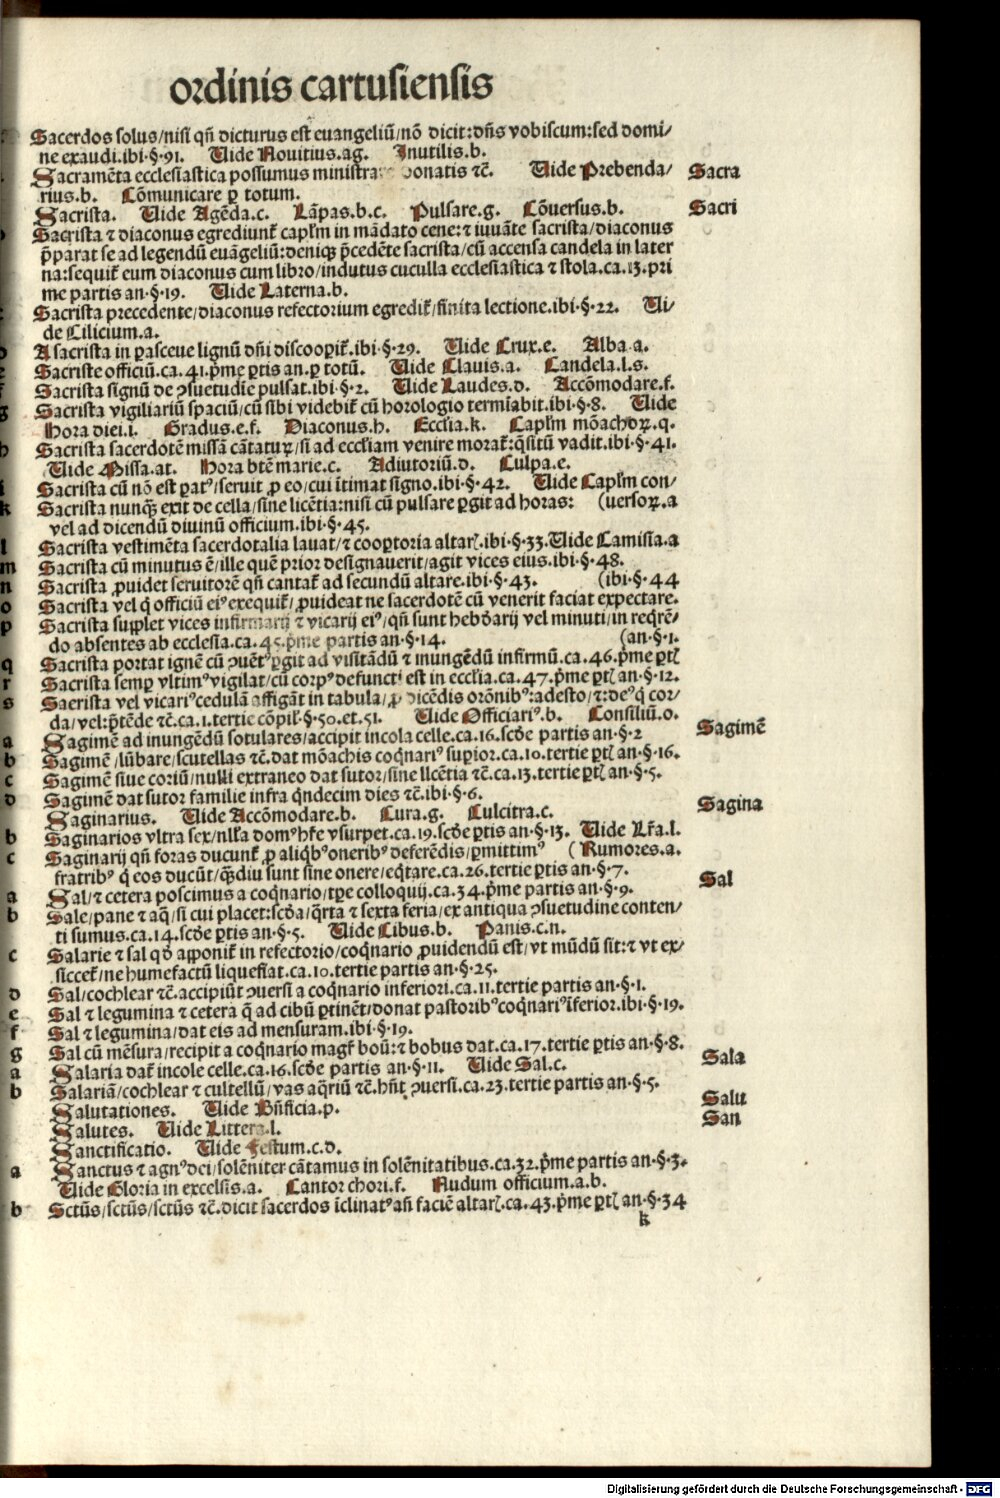 ordinis cartusiensis
Sacerdos solus/nisi qñ dicturus est euangeliũ/nõ dicit:dñs vobiscum:sed domi/
ne exaudi.ibi.§.91. Uide Nouitius.ag. Inutilis.b.
Sacramẽta ecclesiastica possumus ministra onatis ⁊c̃. Uide Prebenda/ Sacra
rius.b. Cõmunicare ꝑ totum.
Sacrista. Uide Agẽda.c. Lãpas.b.c. Pulsare.g. Cõuersus.b. Sacri
Sacrista ⁊ diaconus egrediunt̃ capľm in mãdato cene:⁊ iuuãte sacrista/diaconus
p̃parat se ad legendũ euãgeliũ:deniqꝫ p̃cedẽte sacrista/cũ accensa candela in later
na:sequit̃ eum diaconus cum libro/indutus cuculla ecclesiastica ⁊ stola.ca.13.pri
me partis an.§.19. Uide Laterna.b.
Sacrista precedente/diaconus refectorium egredit̃/finita lectione.ibi.§.22. Ui/
de Cilicium.a.
A sacrista in pasceue lignũ dñi discooꝑit̃.ibi.§.29. Uide Crux.e. Alba a.
Sacriste officiũ.ca.41.p̃me ꝑtis an.ꝑ totũ. Uide Clauis.a. Candela.l.s.
Sacrista signũ de ꝯsuetudĩe pulsat.ibi.§.2. Uide Laudes.d. Accõmodare.f.
Sacrista vigiliariũ spaciũ/cũ sibi videbit̃ cũ horologio termĩabit.ibi.§.8. Uide
Hora diei.i. Gradus.e.f. Diaconus.h. Eccľia.k. Capľm mõachoꝝ.q.
Sacrista sacerdotẽ missã cãtatuꝝ/si ad eccľiam venire morat̃:q̃sitũ vadit.ibi.§.41.
Uide Missa.at. Hora btẽ marie.c. Adiutoriũ.d. Culpa.e.
Sacrista cũ nõ est ꝑatꝰ/seruit ꝓ eo/cui ĩtimat signo.ibi.§.42. Uide Capľm con/
Sacrista nunqꝫ exit de cella/sine licẽtia:nisi cũ pulsare ꝑgit ad horas: (uersoꝝ.a
vel ad dicendũ diuinũ officium.ibi.§.45.
Sacrista vestimẽta sacerdotalia lauat/⁊ cooꝑtoria altarꝭ.ibi.§.33.Uide Camisia.a
Sacrista cũ minutus ẽ/ille quẽ prior designauerit/agit vices eius.ibi.§.48.
Sacrista ꝓuidet seruitorẽ qñ cantat̃ ad secundũ altare.ibi.§.43. (ibi.§.44
Sacrista vel q̃ officiũ eiꝰ exequit̃/ꝓuideat ne sacerdotẽ cũ venerit faciat expectare.
Sacrista supplet vices infirmarij ⁊ vicarij eiꝰ/qñ sunt hebdõarij vel minuti/in reqrẽ/
do absentes ab ecclesia.ca.45.p̃me partis an.§.14. (an.§.1.
Sacrista portat ignẽ cũ ꝯuẽtꝰ ꝑgit ad visitãdũ ⁊ inungẽdũ infirmũ.ca.46.p̃me ꝑtꝭ
Sacrista semꝑ vltimꝰ vigilat/cũ corpꝰ defuncti est in eccľia.ca.47.p̃me ꝑtꝭ an.§.12.
Sacrista vel vicariꝰ cedulã affigãt in tabula/ꝓ dicẽdis orõnibꝰ:adesto/⁊:deꝰ q̃ cor/
da/vel:p̃tẽde ⁊c̃.ca.1.tertie cõpil̃.§.50.et.51. Uide Officiariꝰ.b. Consiliũ.o.
Sagimẽ ad inungẽdũ sotulares/accipit incola celle.ca.16.scďe partis an.§.2 Sagimẽ
Sagimẽ/lũbare/scutellas ⁊c̃.dat mõachis coq̃nariꝰ suꝑior.ca.10.tertie ꝑtꝭ an.§.16.
Sagimẽ siue coriũ/nulli extraneo dat sutor/sine licẽtia ⁊c̃.ca.13.tertie ꝑtꝭ an.§.5.
Sagimẽ dat sutor familie infra q̃ndecim dies ⁊c̃.ibi.§.6.
Saginarius. Uide Accõmodare.b. Cura.g. Culcitra.c. Sagina
Saginarios vltra sex/nlľa domꝰ hr̃e vsurpet.ca.19.scďe ꝑtis an.§.13. Uide Lr̃a.l.
Saginarij qñ foras ducunt̃ ꝓ aliq̃bꝰ oneribꝰ deferẽdis/ꝑmittimꝰ (Rumores.a.
fratribꝰ q̃ eos ducũt/q̃ꝫdiu sunt sine onere/eq̃tare.ca.26.tertie ꝑtis an.§.7.
Sal/⁊ cetera poscimus a coq̃nario/tp̃e colloquij.ca.34.p̃me partis an.§.9. Sal
Sale/pane ⁊ aq̃/si cui placet:scďa/q̃rta ⁊ sexta feria/ex antiqua ꝯsuetudine conten/
ti sumus.ca.14.scďe ꝑtis an.§.5. Uide Cibus.b. Panis.c.n.
Salarie ⁊ sal qď apponit̃ in refectorio/coq̃nario ꝓuidendũ est/vt mũdũ sit:⁊ vt ex/
siccet̃/ne humefactũ liquefiat.ca.10.tertie partis an.§.25.
Sal/cochlear ⁊c̃.accipiũt ꝯuersi a coq̃nario inferiori.ca.11.tertie partis an.§.1.
Sal ⁊ legumina ⁊ cetera q̃ ad cibũ ꝑtinẽt/donat pastoribꝰ coq̃nariꝰ ĩferior.ibi.§.19.
Sal ⁊ legumina/dat eis ad mensuram.ibi.§.19.
Sal cũ mẽsura/recipit a coq̃nario magr̃ boũ:⁊ bobus dat.ca.17.tertie ꝑtis an.§.8.
Salaria dat̃ incole celle.ca.16.scďe partis an.§.11. Uide Sal.c. Sala
Salariã/cochlear ⁊ cultellũ/vas aq̃riũ ⁊c̃.hñt ꝯuersi.ca.23.tertie partis an.§.5.
Salutationes. Uide Bñficia.p. Salu
Salutes. Uide Littera.l. San
Sanctificatio. Uide Festum.c.d.
Sanctus ⁊ agnꝰ dei/solẽniter cãtamus in solẽnitatibus.ca.32.p̃me partis an.§.3.
Uide Gloria in excelsis.a. Cantor chori.f. Nudum officium.a.b.
Sctũs/sctũs/sctũs ⁊c̃.dicit sacerdos ĩclinatꝰ añ faciẽ altarꝭ.ca.43.p̃me ꝑtꝭ an.§.34
k
Digitalisierung gefördert durch die Deutsche Forschungsgemeinschaft - DFG